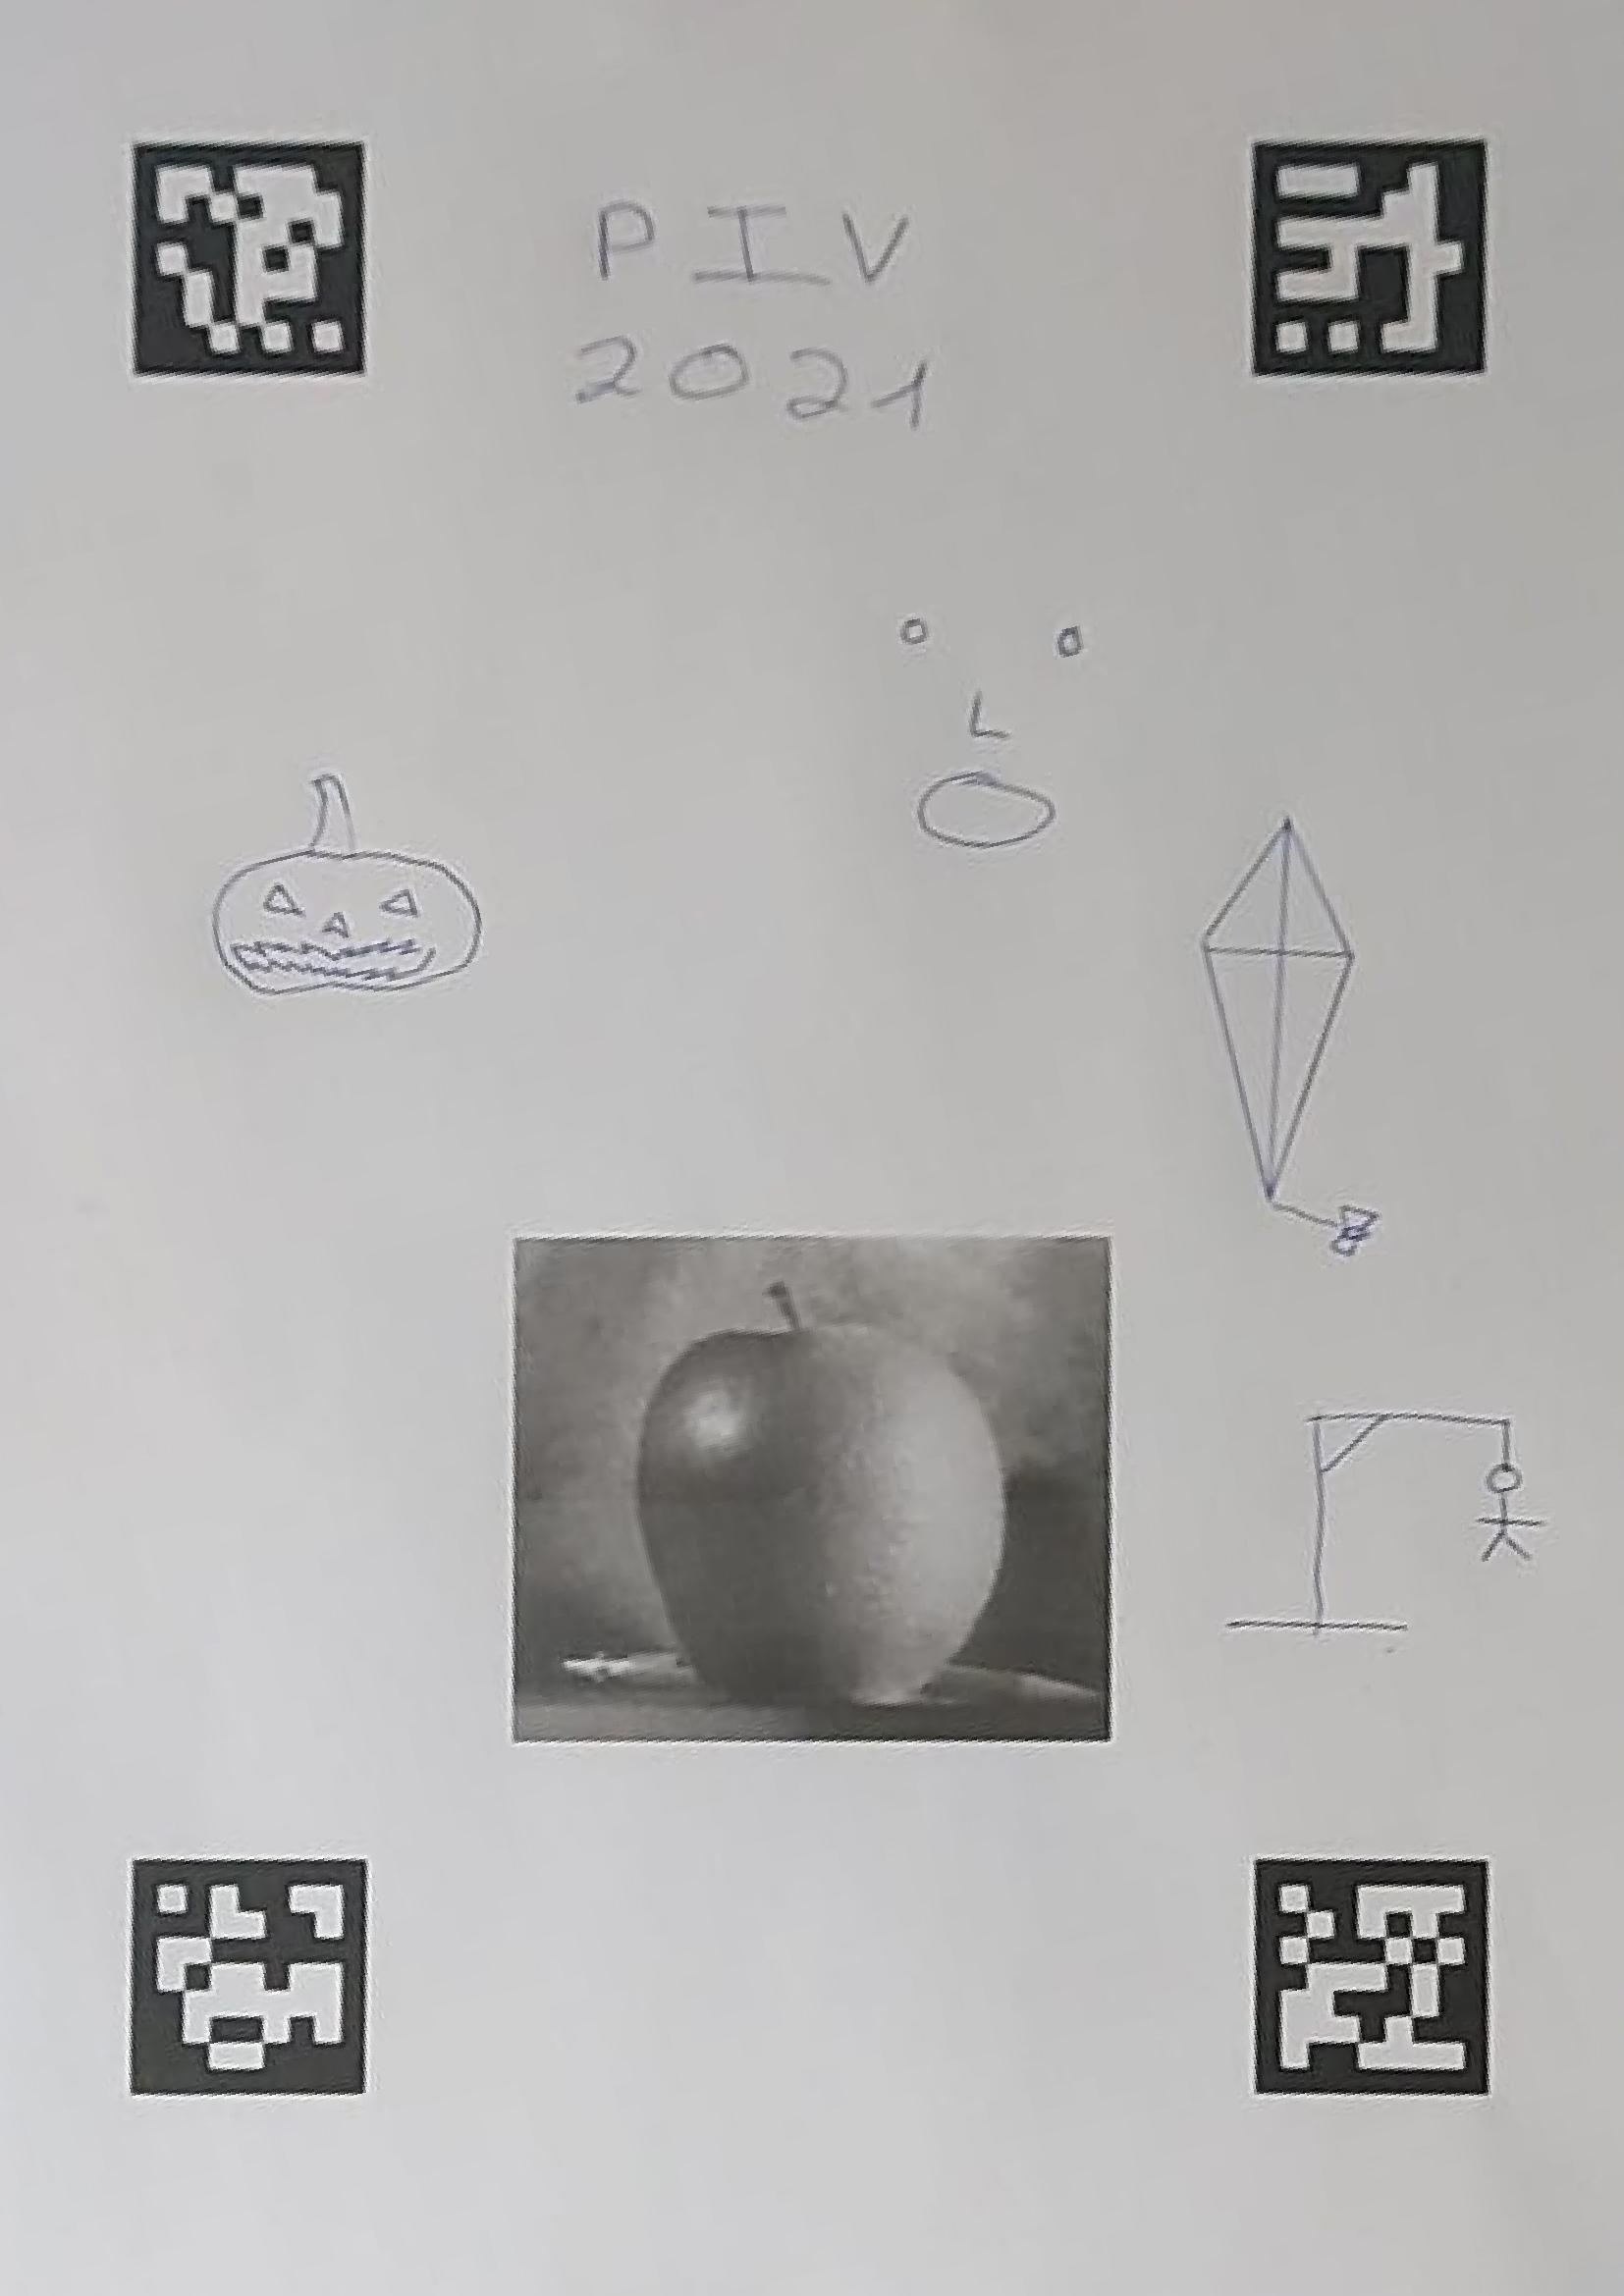 P I V
2021